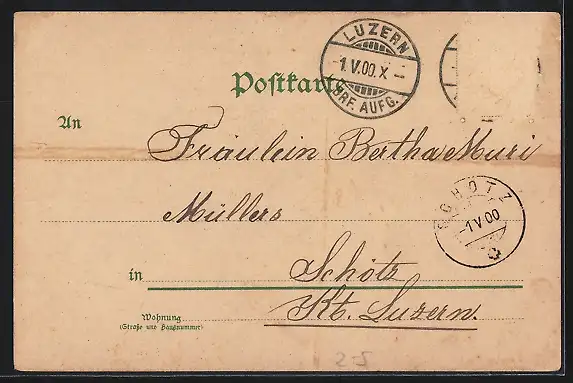 LUZERN
1.V.00.X
BRF. AUFG.
Postkarte
An
Fräulein Bertha Muri
Müllers
SCHÖTZ
-1 V 00
in Schötz
Kt. Luzern.
Wohnung
(Straße und Hausnummer)
2-5